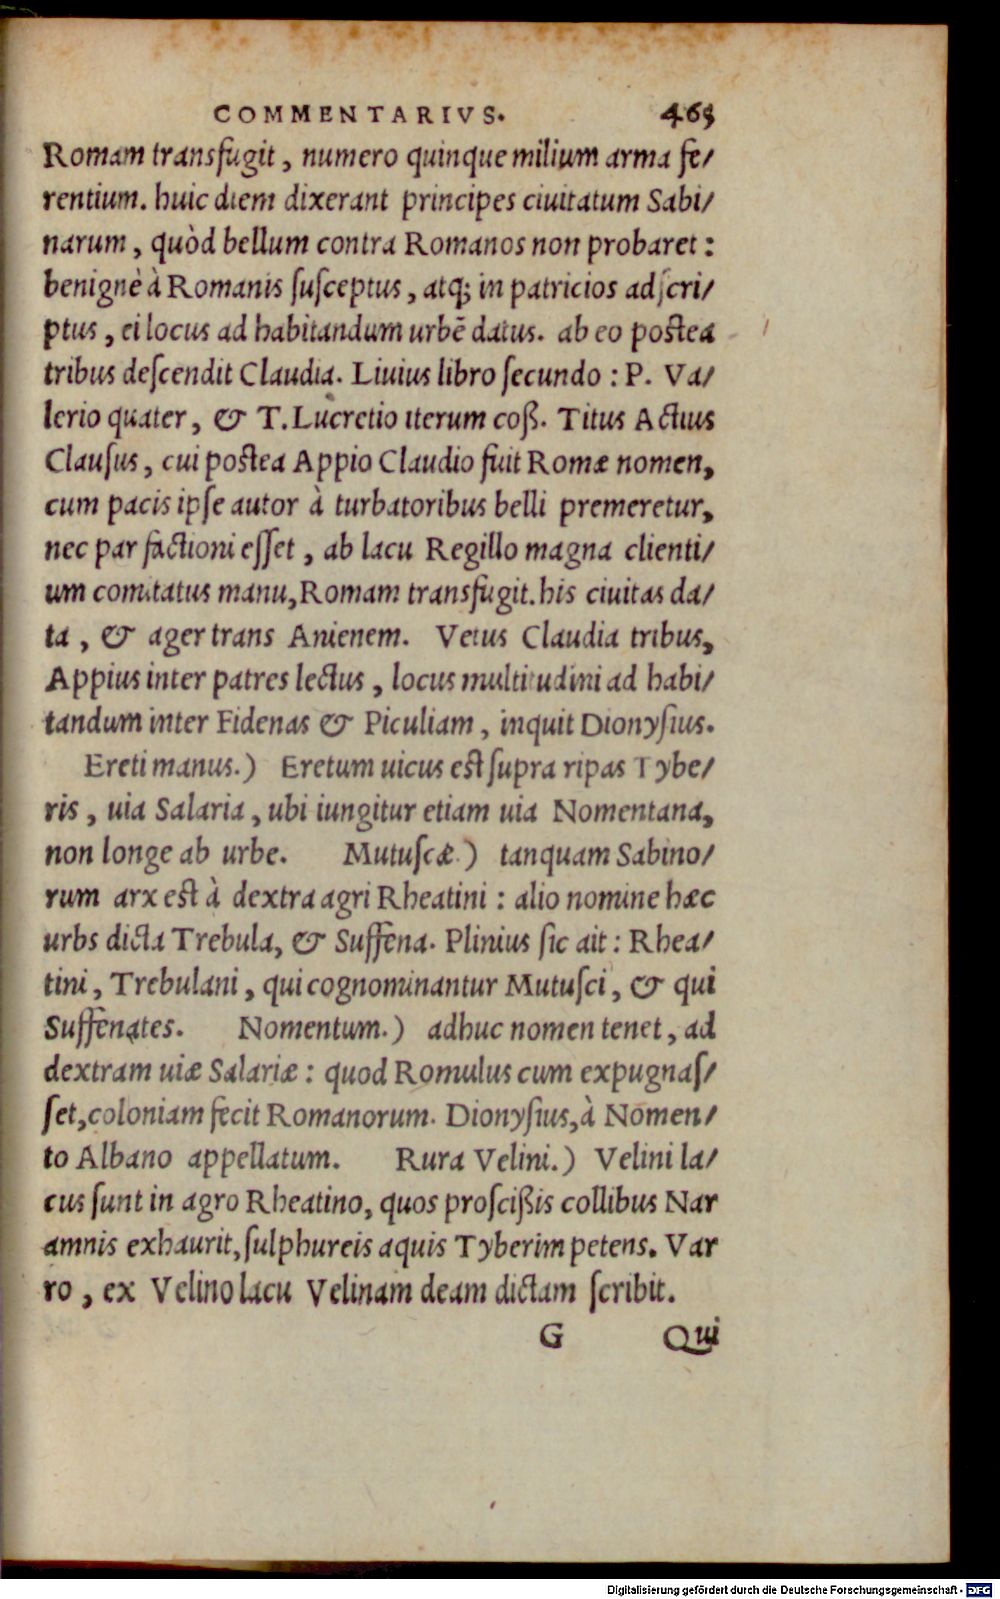 COMMENTARIVS. 465
Romam transfugit, numero quinque milium arma fe/
rentium. huic diem dixerant principes ciuitatum Sabi/
narum, quòd bellum contra Romanos non probaret:
benignè à Romanis ſuſceptus, atq; in patricios adſcri/
ptus, ei locus ad habitandum urbē datus. ab eo postea
tribus deſcendit Claudia. Liuius libro ſecundo: P. Va/
lerio quater, & T. Lucretio iterum coß. Titus Actius
Clauſus, cui postea Appio Claudio fuit Romæ nomen,
cum pacis ipſe autor à turbatoribus belli premeretur,
nec par factioni eſſet, ab lacu Regillo magna clienti/
um comitatus manu, Romam transfugit. his ciuitas da/
ta, & ager trans Anienem. Vetus Claudia tribus,
Appius inter patres lectus, locus multitudini ad habi/
tandum inter Fidenas & Piculiam, inquit Dionyſius.
Ereti manus.) Eretum uicus est ſupra ripas Tybe/
ris, uia Salaria, ubi iungitur etiam uia Nomentana,
non longe ab urbe. Mutuſcæ.) tanquam Sabino/
rum arx est à dextra agri Rheatini: alio nomine hæc
urbs dicta Trebula, & Suffena. Plinius ſic ait: Rhea/
tini, Trebulani, qui cognominantur Mutuſci, & qui
Suffenates. Nomentum.) adhuc nomen tenet, ad
dextram uiæ Salariæ: quod Romulus cum expugnaſ/
ſet, coloniam fecit Romanorum. Dionyſius, à Nomen/
to Albano appellatum. Rura Velini.) Velini la/
cus ſunt in agro Rheatino, quos proſcißis collibus Nar
amnis exhaurit, ſulphureis aquis Tyberim petens. Var
ro, ex Velino lacu Velinam deam dictam ſcribit.
G Qui
Digitalisierung gefördert durch die Deutsche Forschungsgemeinschaft - DFG